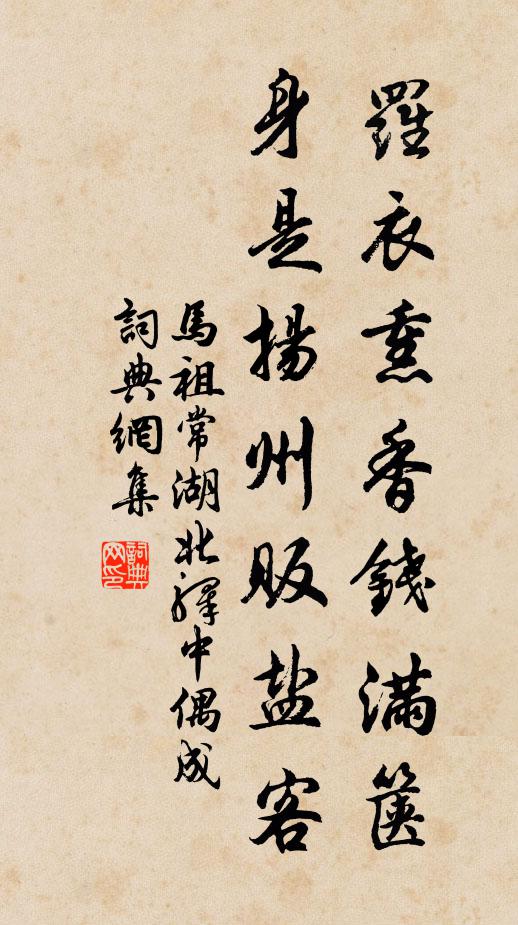 羅衣熏香錢滿篋
身是揚州販盐客
馬祖常湖北驛中偶成
詞典網集
詞典网印